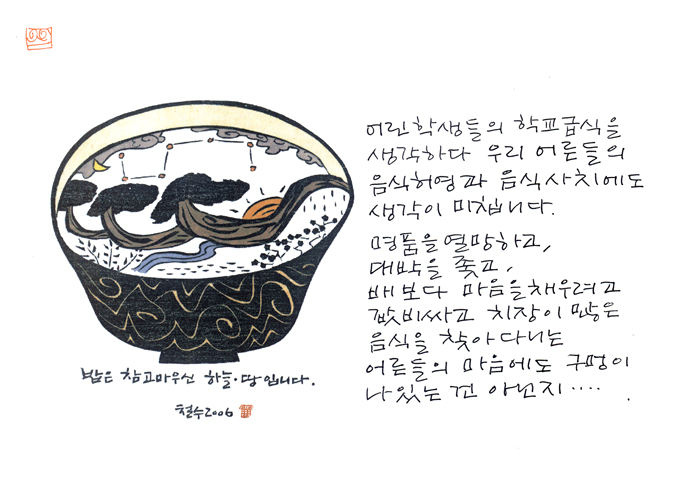 밥은 참 고마우신 하늘·땅입니다.
철수2006
어린 학생들의 학교급식을
생각하다 우리 어른들의
음식허영과 음식사치에도
생각이 미칩니다.
명품을 열망하고,
대박을 좇고,
배보다 마음을 채우려고
값비싸고 치장이 많은
음식을 찾아다니는
어른들의 마음에도 구멍이
나 있는 건 아닌지‥‥.